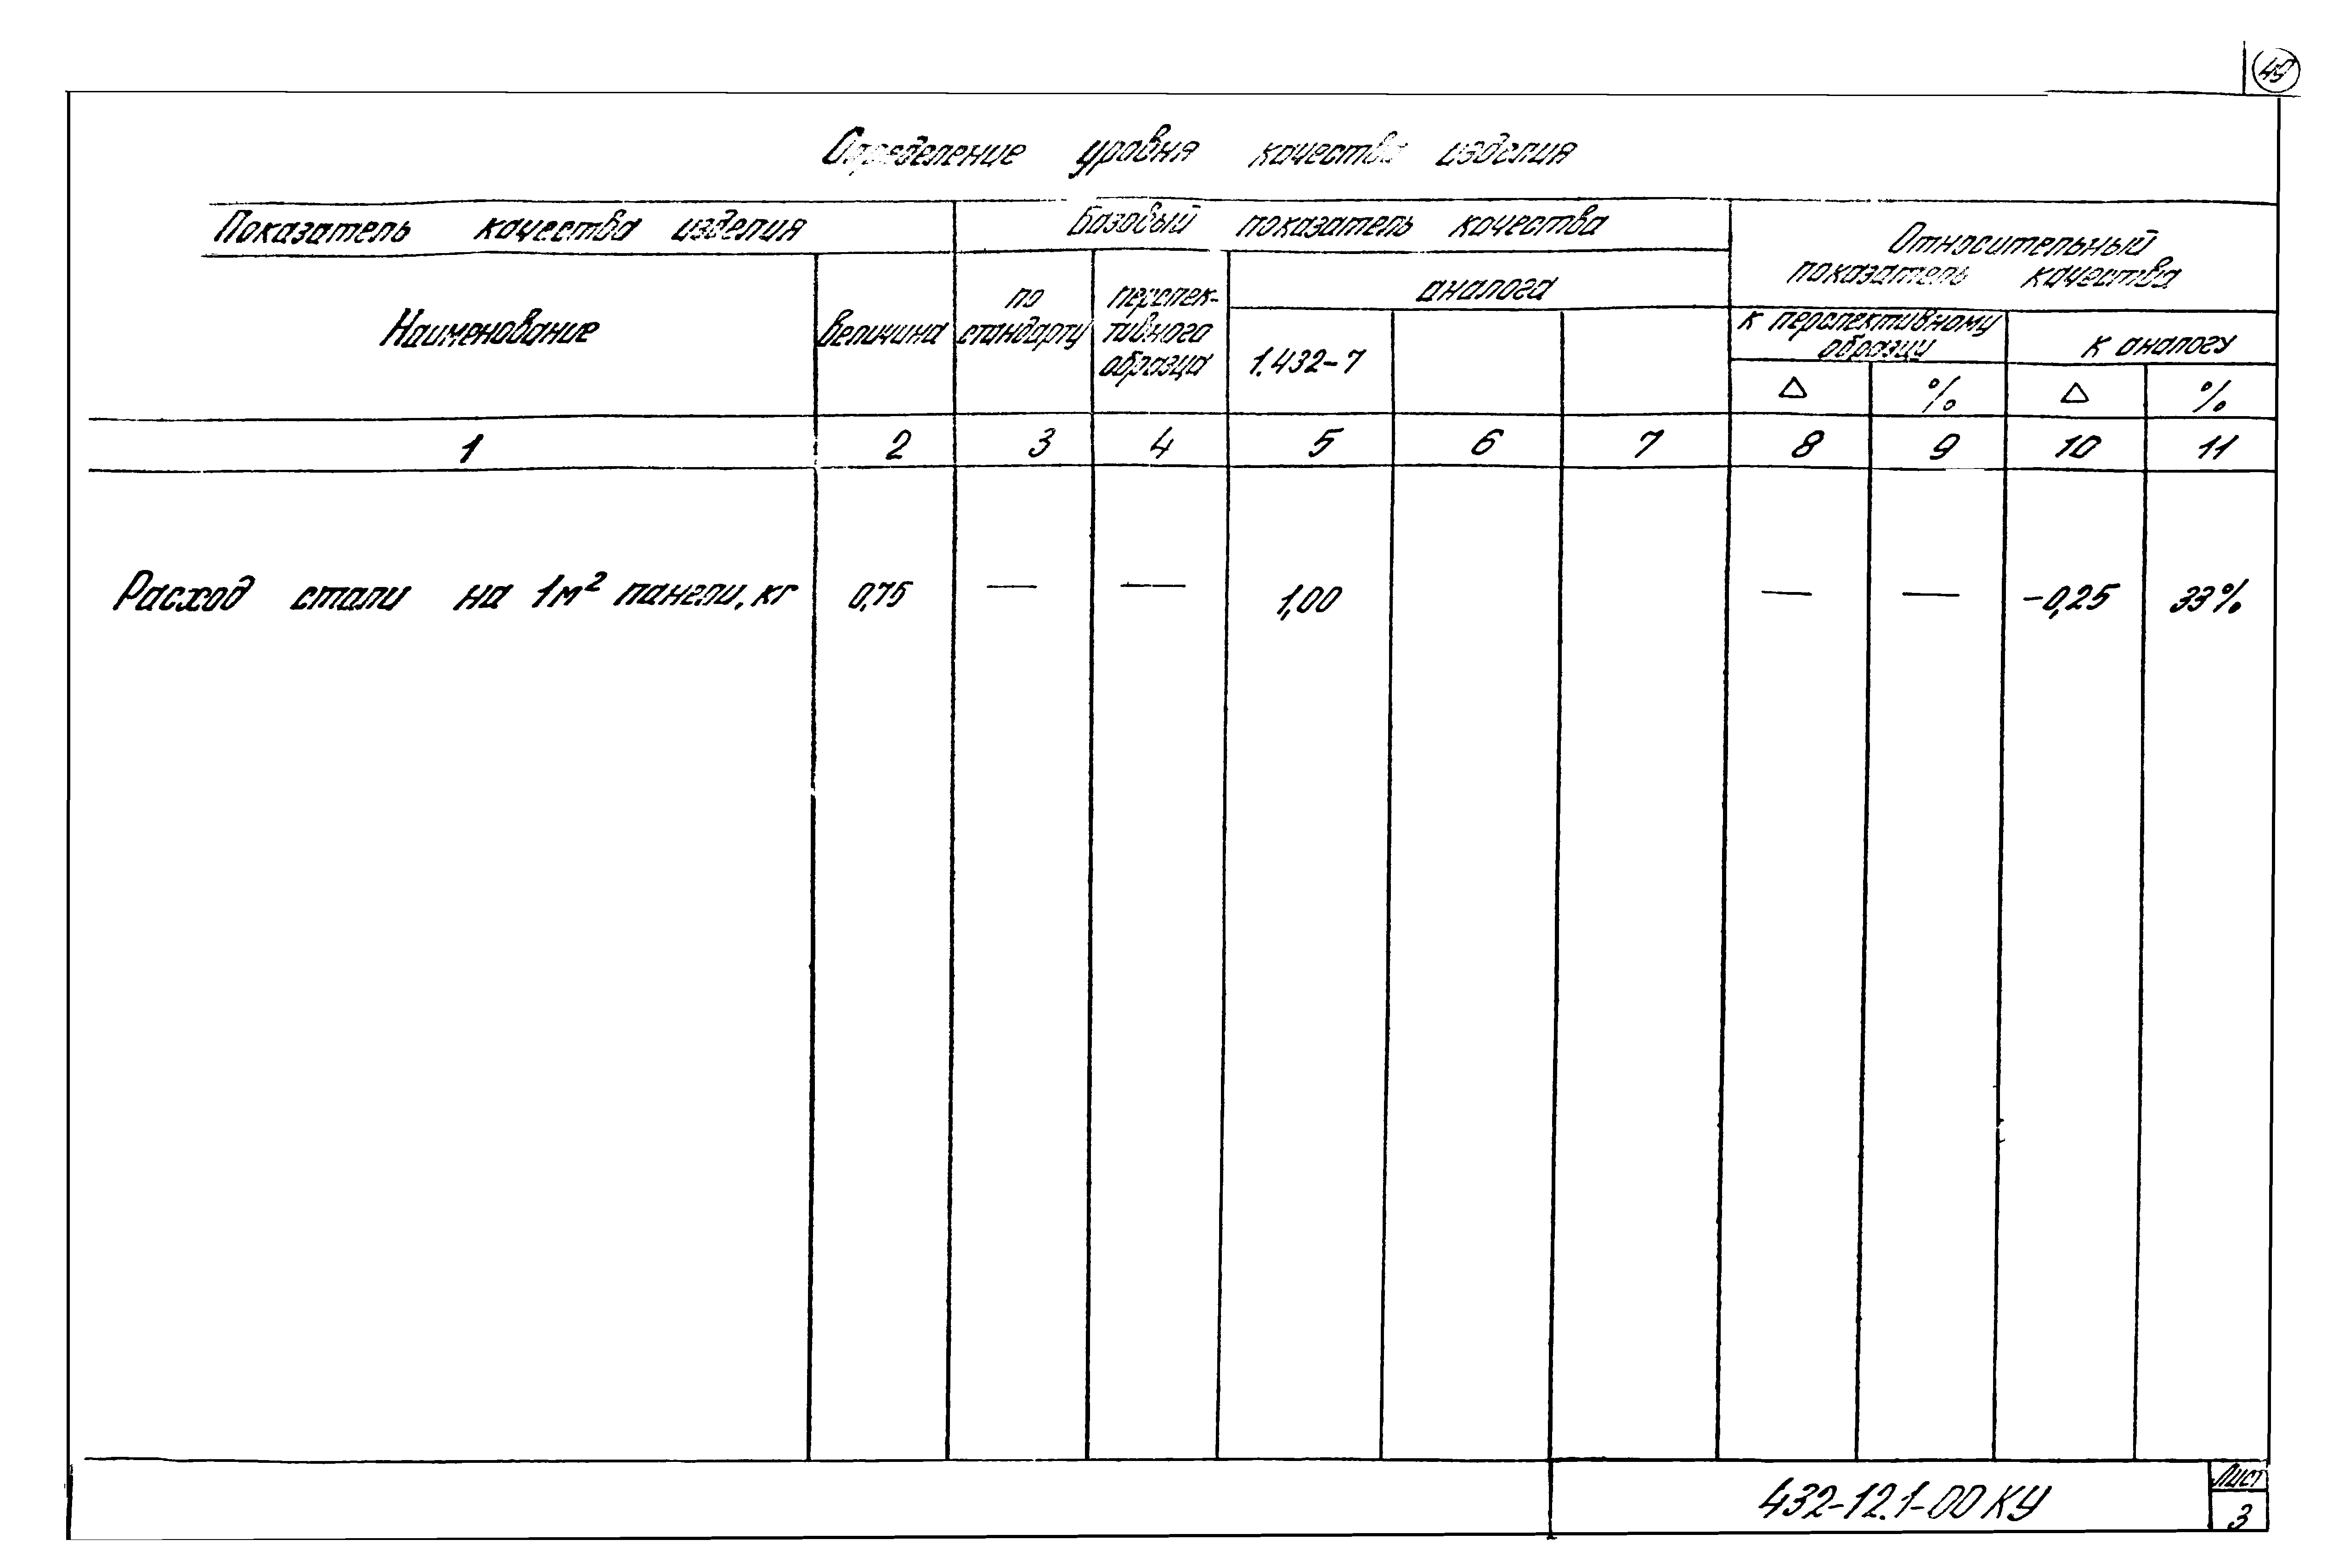 49
Определение уровня качества изделия
Показатель качества изделия
Базовый показатель качества
Относительный
показатель качества
Наименование
Величина
по
стандарту
перспек-
тивного
образца
аналога
1.432-7
к перспективному
образцу
к аналогу
Δ % Δ %
1 2 3 4 5 6 7 8 9 10 11
Расход стали на 1м² панели, кг 0,75 — — 1,00 — — -0,25 33%
432-12.1-00 КУ
Лист
3